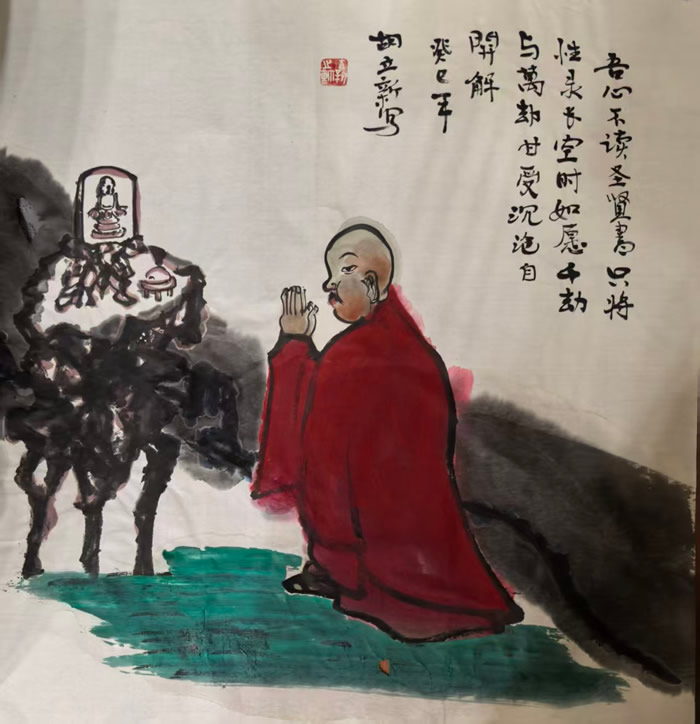 吾心不读圣賢書只将
性灵长空时如愿千劫
与萬劫甘受沉沦自
開解
癸巳年
胡立新写